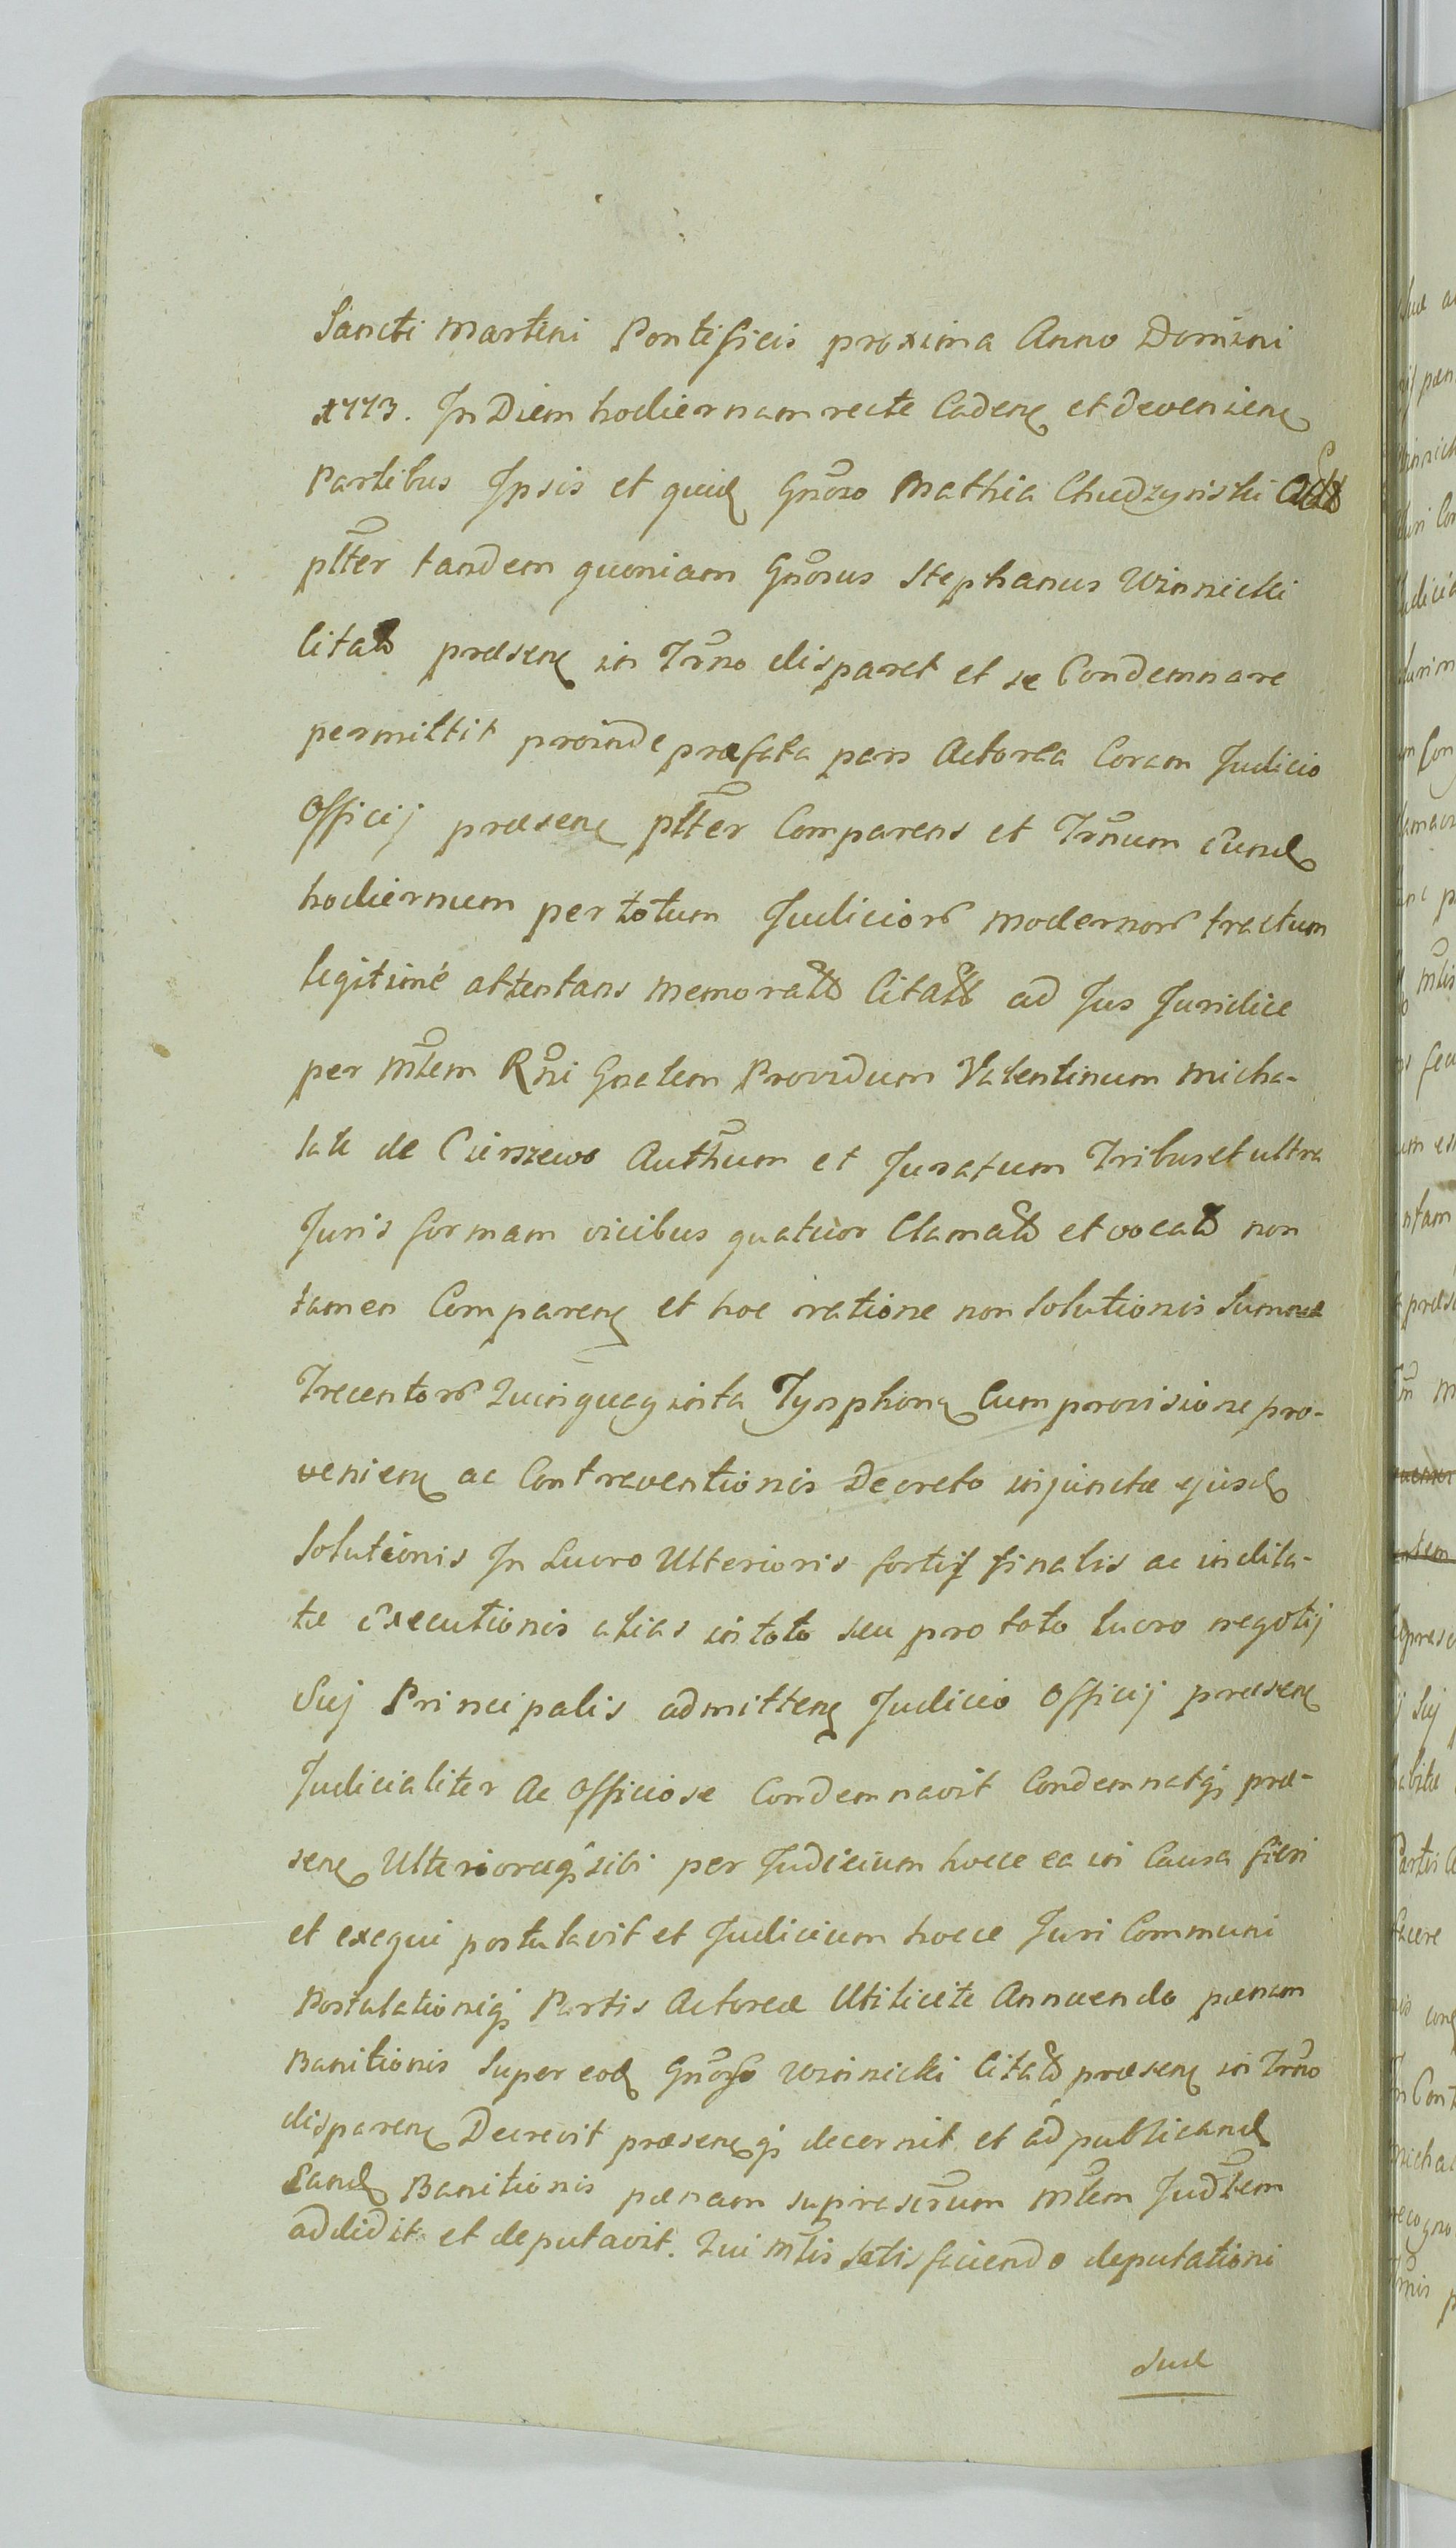 Sancti Martini Pontificis proxima Anno Domini
1773. In Diem hodiernam recte Cadeñ et Devenieñ
Partibus Ipsis et quid Gnoso Mathia Chudzynski
pltter tandem quoniam Gnosus Stephanus Winnicki
Citato præseñ in Trno disparet et se Condemnare
permittit proinde præfata pars Actorea Coram Judicio
Officij præseñ pltter Comparens et Trnum eund
hodiernum per totum Judicior modernor tractum
legitimé attentans memorato Citato ad Jus Juridice
per Mlem Rni Gnalem Providum Valentinum Micha-
lak de Cierszewo Authum et Juratum Tribus et ultra
Juris formam vicibus quatuor Clamato et vocato non
tamen Compareñ et hoc ratione non Solutionis Summæ
Trecentor Quinquaginta Tynphoñ Cum provisione pro-
venieñ ac Contraventionis Decreto injunctæ ejusd
Solutionis In Lucro Ulterioris fortis finalis ac indila-
tæ Executionis alias in toto seu pro toto lucro negotij
Suj Principalis admitteñ Judicio Officij præseñ
Judicialiter Ac Officiose Condemnavit Condemnatq præ-
señ Ulterioraq sibi per Judicium hocce ea in Causa fieri
et exequi postulavit et Judicium hocce Juri Communi
Postulationiq Partis Actoreæ Utilicite Annuendo pænam
Banitionis Super eod Gnoso Winnicki Citato præseñ in Trno
dispareñ Decrevit præseñq decernit et ad publicand
Eand Banitionis pænam suprascrum Mlem Judlem
addidit et deputavit. Qui Mlis Satisfaciendo deputationi
Suæ